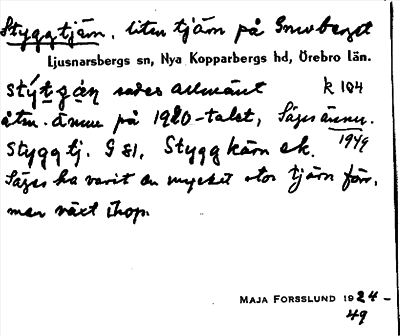 Styggtjärn, liten tjärn på Snöberget
Ljusnarsbergs sn, Nya Kopparbergs hd, Örebro län.
sades allmänt k 104
åtm. ännu på 1920-talet, Säges ännu.
1949
Styggtj. G 81, Styggkärn ek.
Säges ha varit en mycket stor tjärn förr,
men växt ihop.
MAJA FORSSLUND 1924-
49